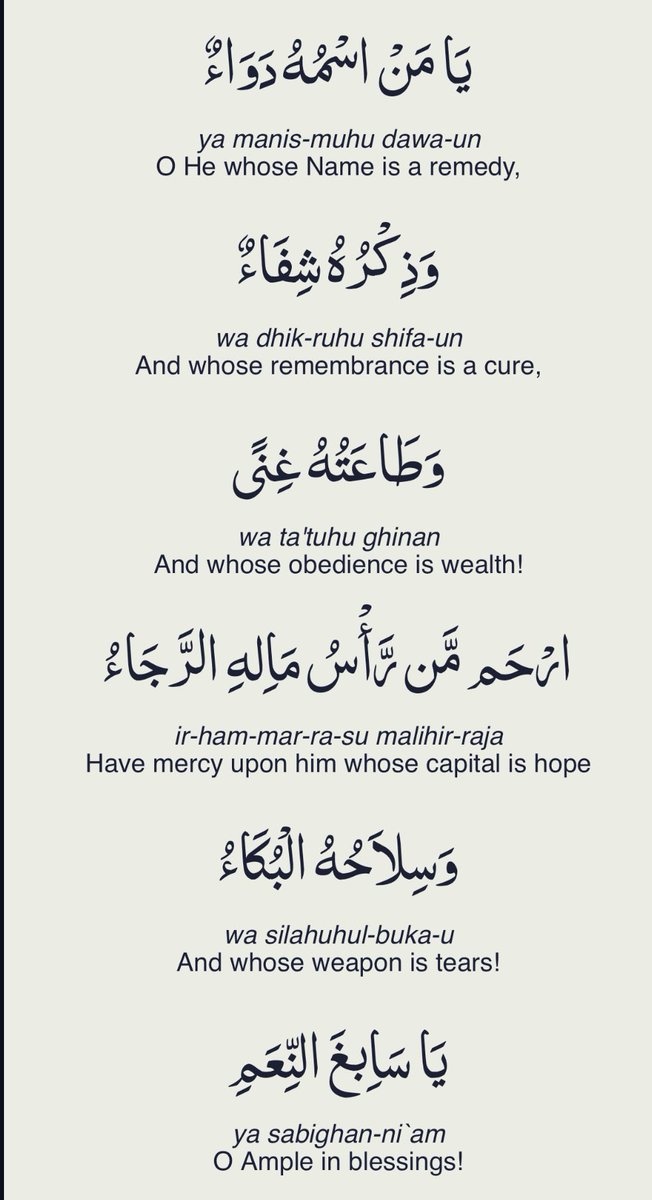 يَا مَنْ اسْمُهُ دَوَاءٌ
ya manis-muhu dawa-un
O He whose Name is a remedy,
وَذِكْرُهُ شِفَاءٌ
wa dhik-ruhu shifa-un
And whose remembrance is a cure,
وَطَاعَتُهُ غِنًى
wa ta'tuhu ghinan
And whose obedience is wealth!
ارْحَم مَّن رَّأْسُ مَالِهِ الرَّجَاءُ
ir-ham-mar-ra-su malihir-raja
Have mercy upon him whose capital is hope
وَسِلاَحُهُ الْبُكَاءُ
wa silahuhul-buka-u
And whose weapon is tears!
يَا سَابِغَ النِّعَمِ
ya sabighan-ni`am
O Ample in blessings!